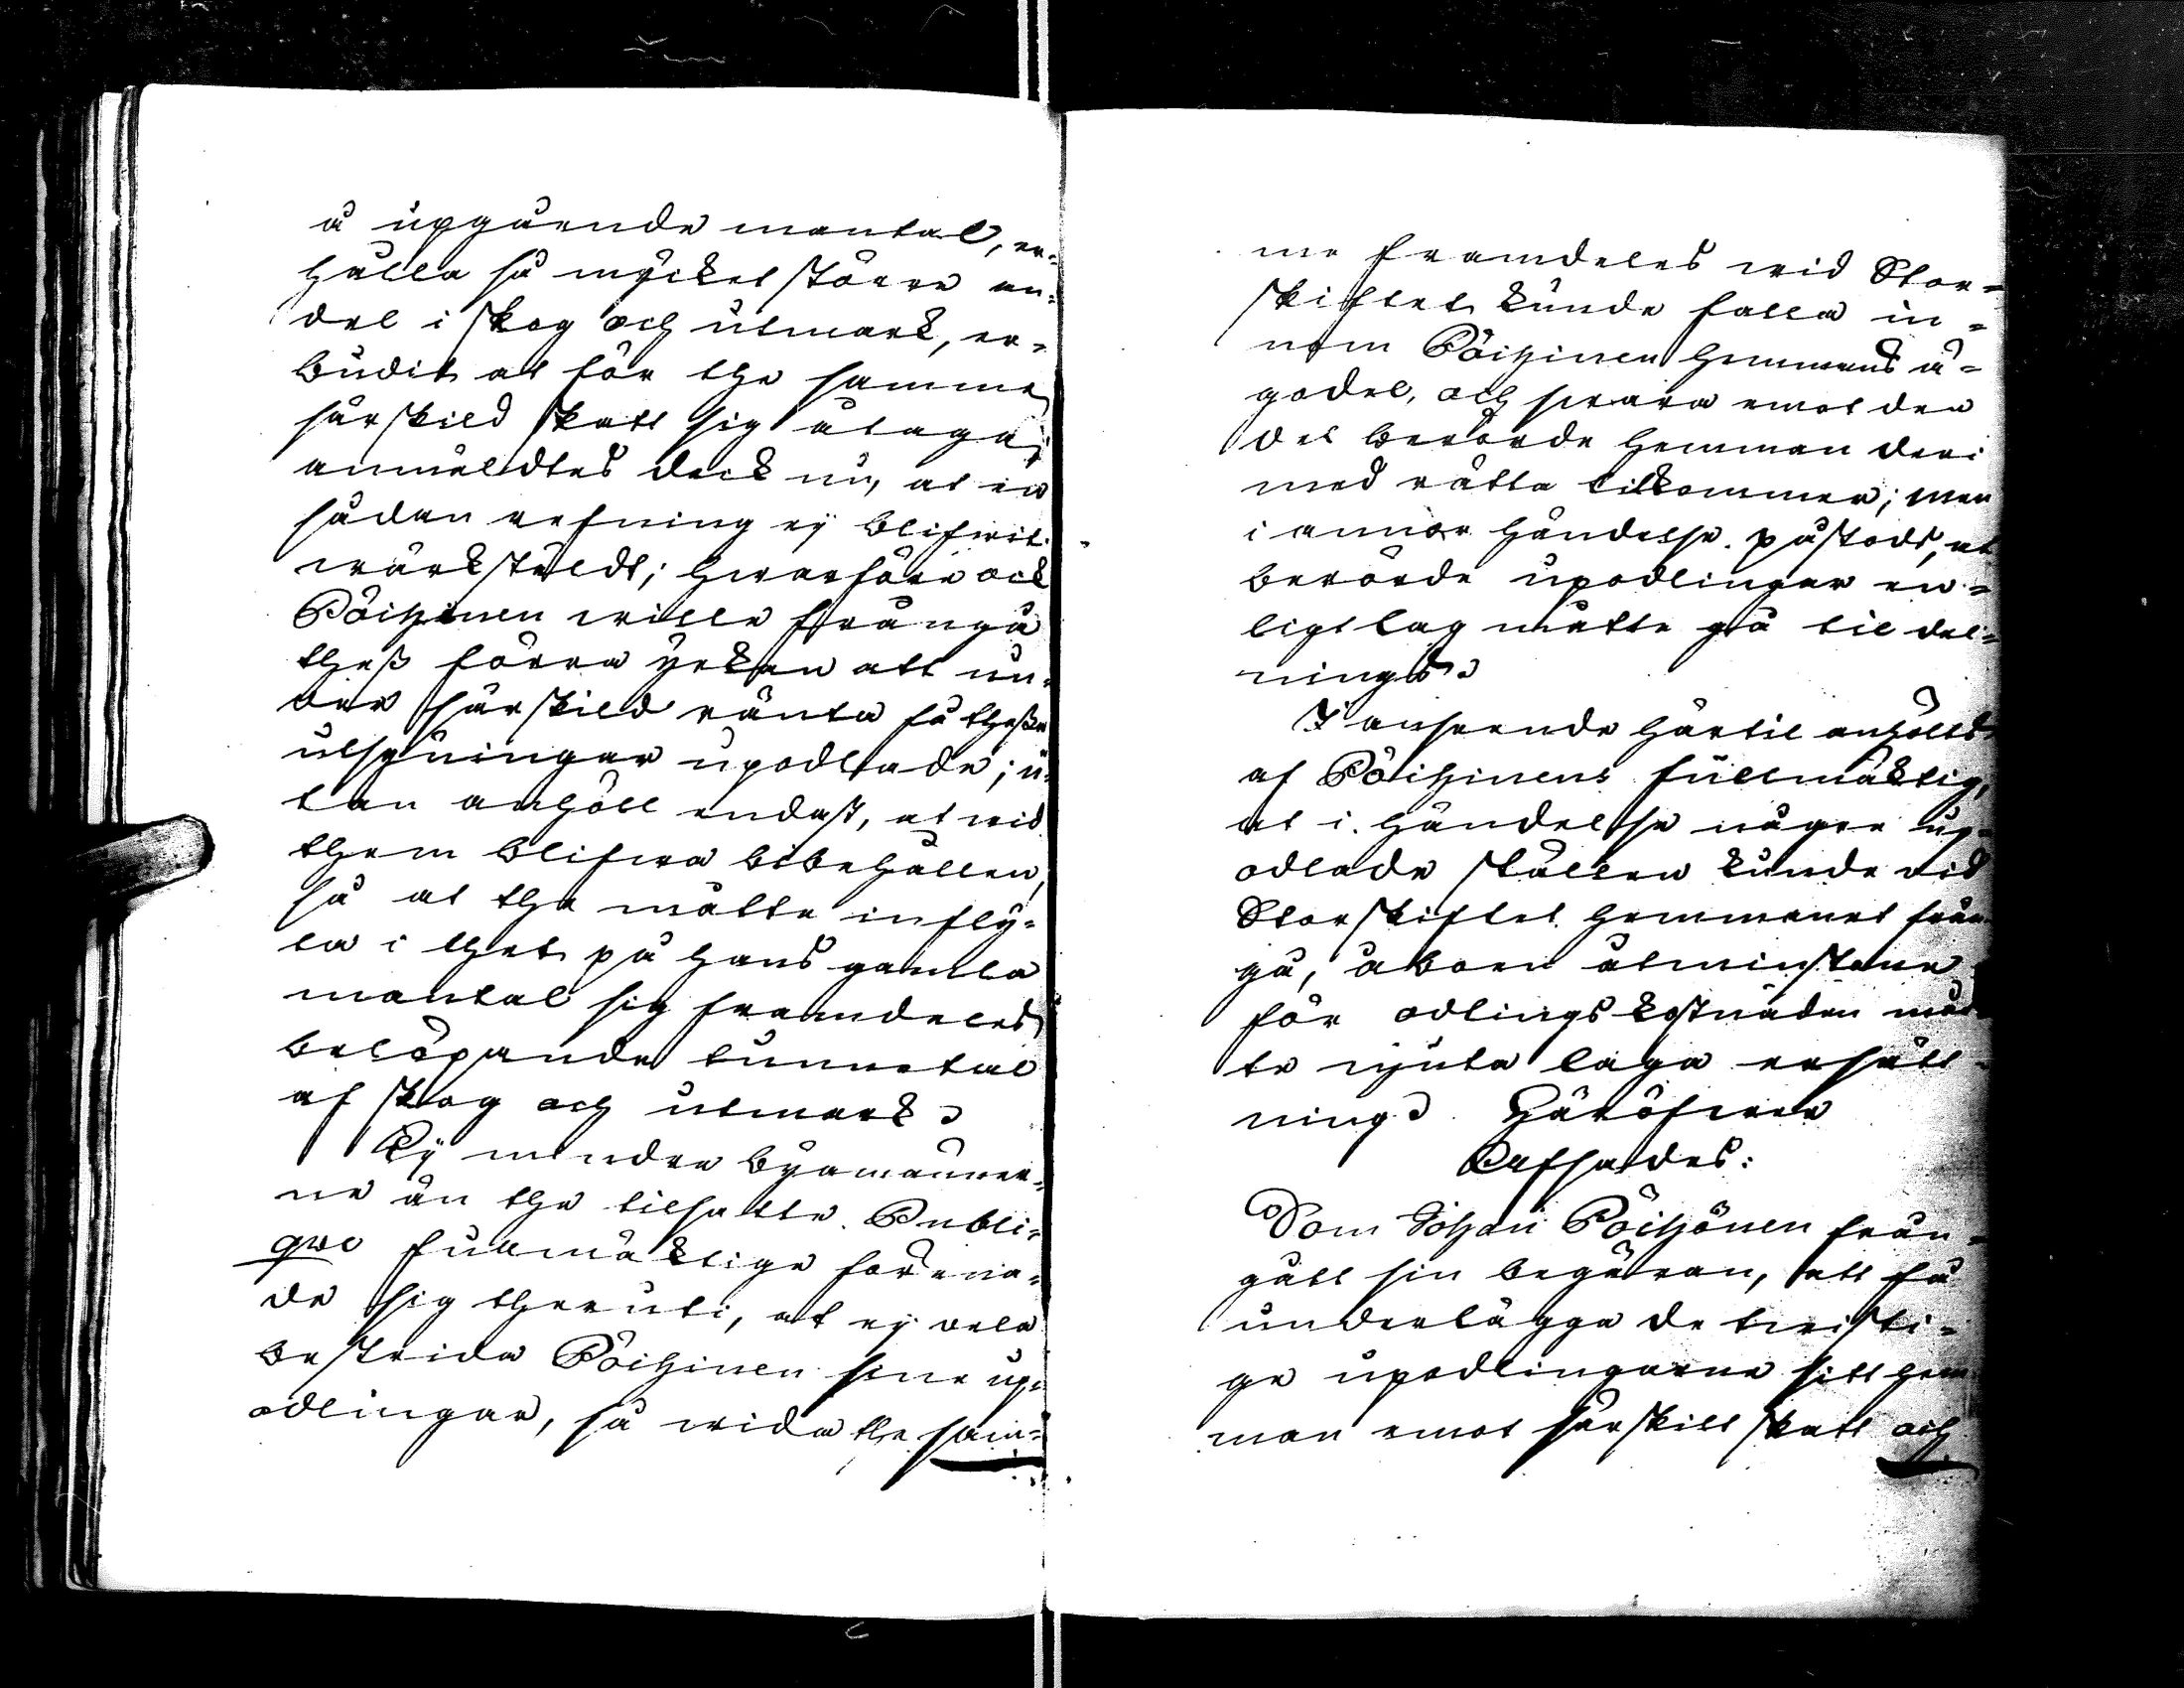 å upgående mantal, er-
hålla så myckit större an-
del i skog och utmark, er-
budit at för the samma
särskild skatt sig åtaga;
anmäldtes dock nu, at en
sådan refning ej blifwit
wärkstäldt; hwarföre ock
Pöihinen wille frångå
theß förra yrkan att un-
der särskild ränta få theße
utsyningar upodlade; u-
tan anhöll endast, at wid
them blifwa bibehållen,
så at the måtte infly-
ta i thet på hans gamla
mantal sig framdeles
belöpande tunnetal
af skog och utmark.
Ej mindre byamänner-
ne än the tilsatte Publi-
que fullmäktige förena-
de sig theruti, at ej vela
bestrida Pöihinen sine up-
odlingar, så wida the sam-
me framdeles wid Stor-
skiftet kunde falla in-
nom Pöihinen hemmans ä-
godel, och swara emot den
del berörde hemman deri
med rätta tilkommer; men
i annor händelse påstods, at
berörde upodlingar en-
ligt lag måtte gå til del-
ning.
I anseende härtil anhölts
af Pöihinens fullmäktig,
at i händelse någre up-
odlade ställen kunde wid
Storskiftet hemmanet från-
gå, åboen åtminstone
för odlings kostnaden måt-
te njuta laga ersätt-
ning. Häröfwer
Resfades:
Som Johan Pöihönen från-
gått sin begäran, att få
underlägga de twisti-
ge upodlingarne sitt hem-
man emot särskilt skatt och